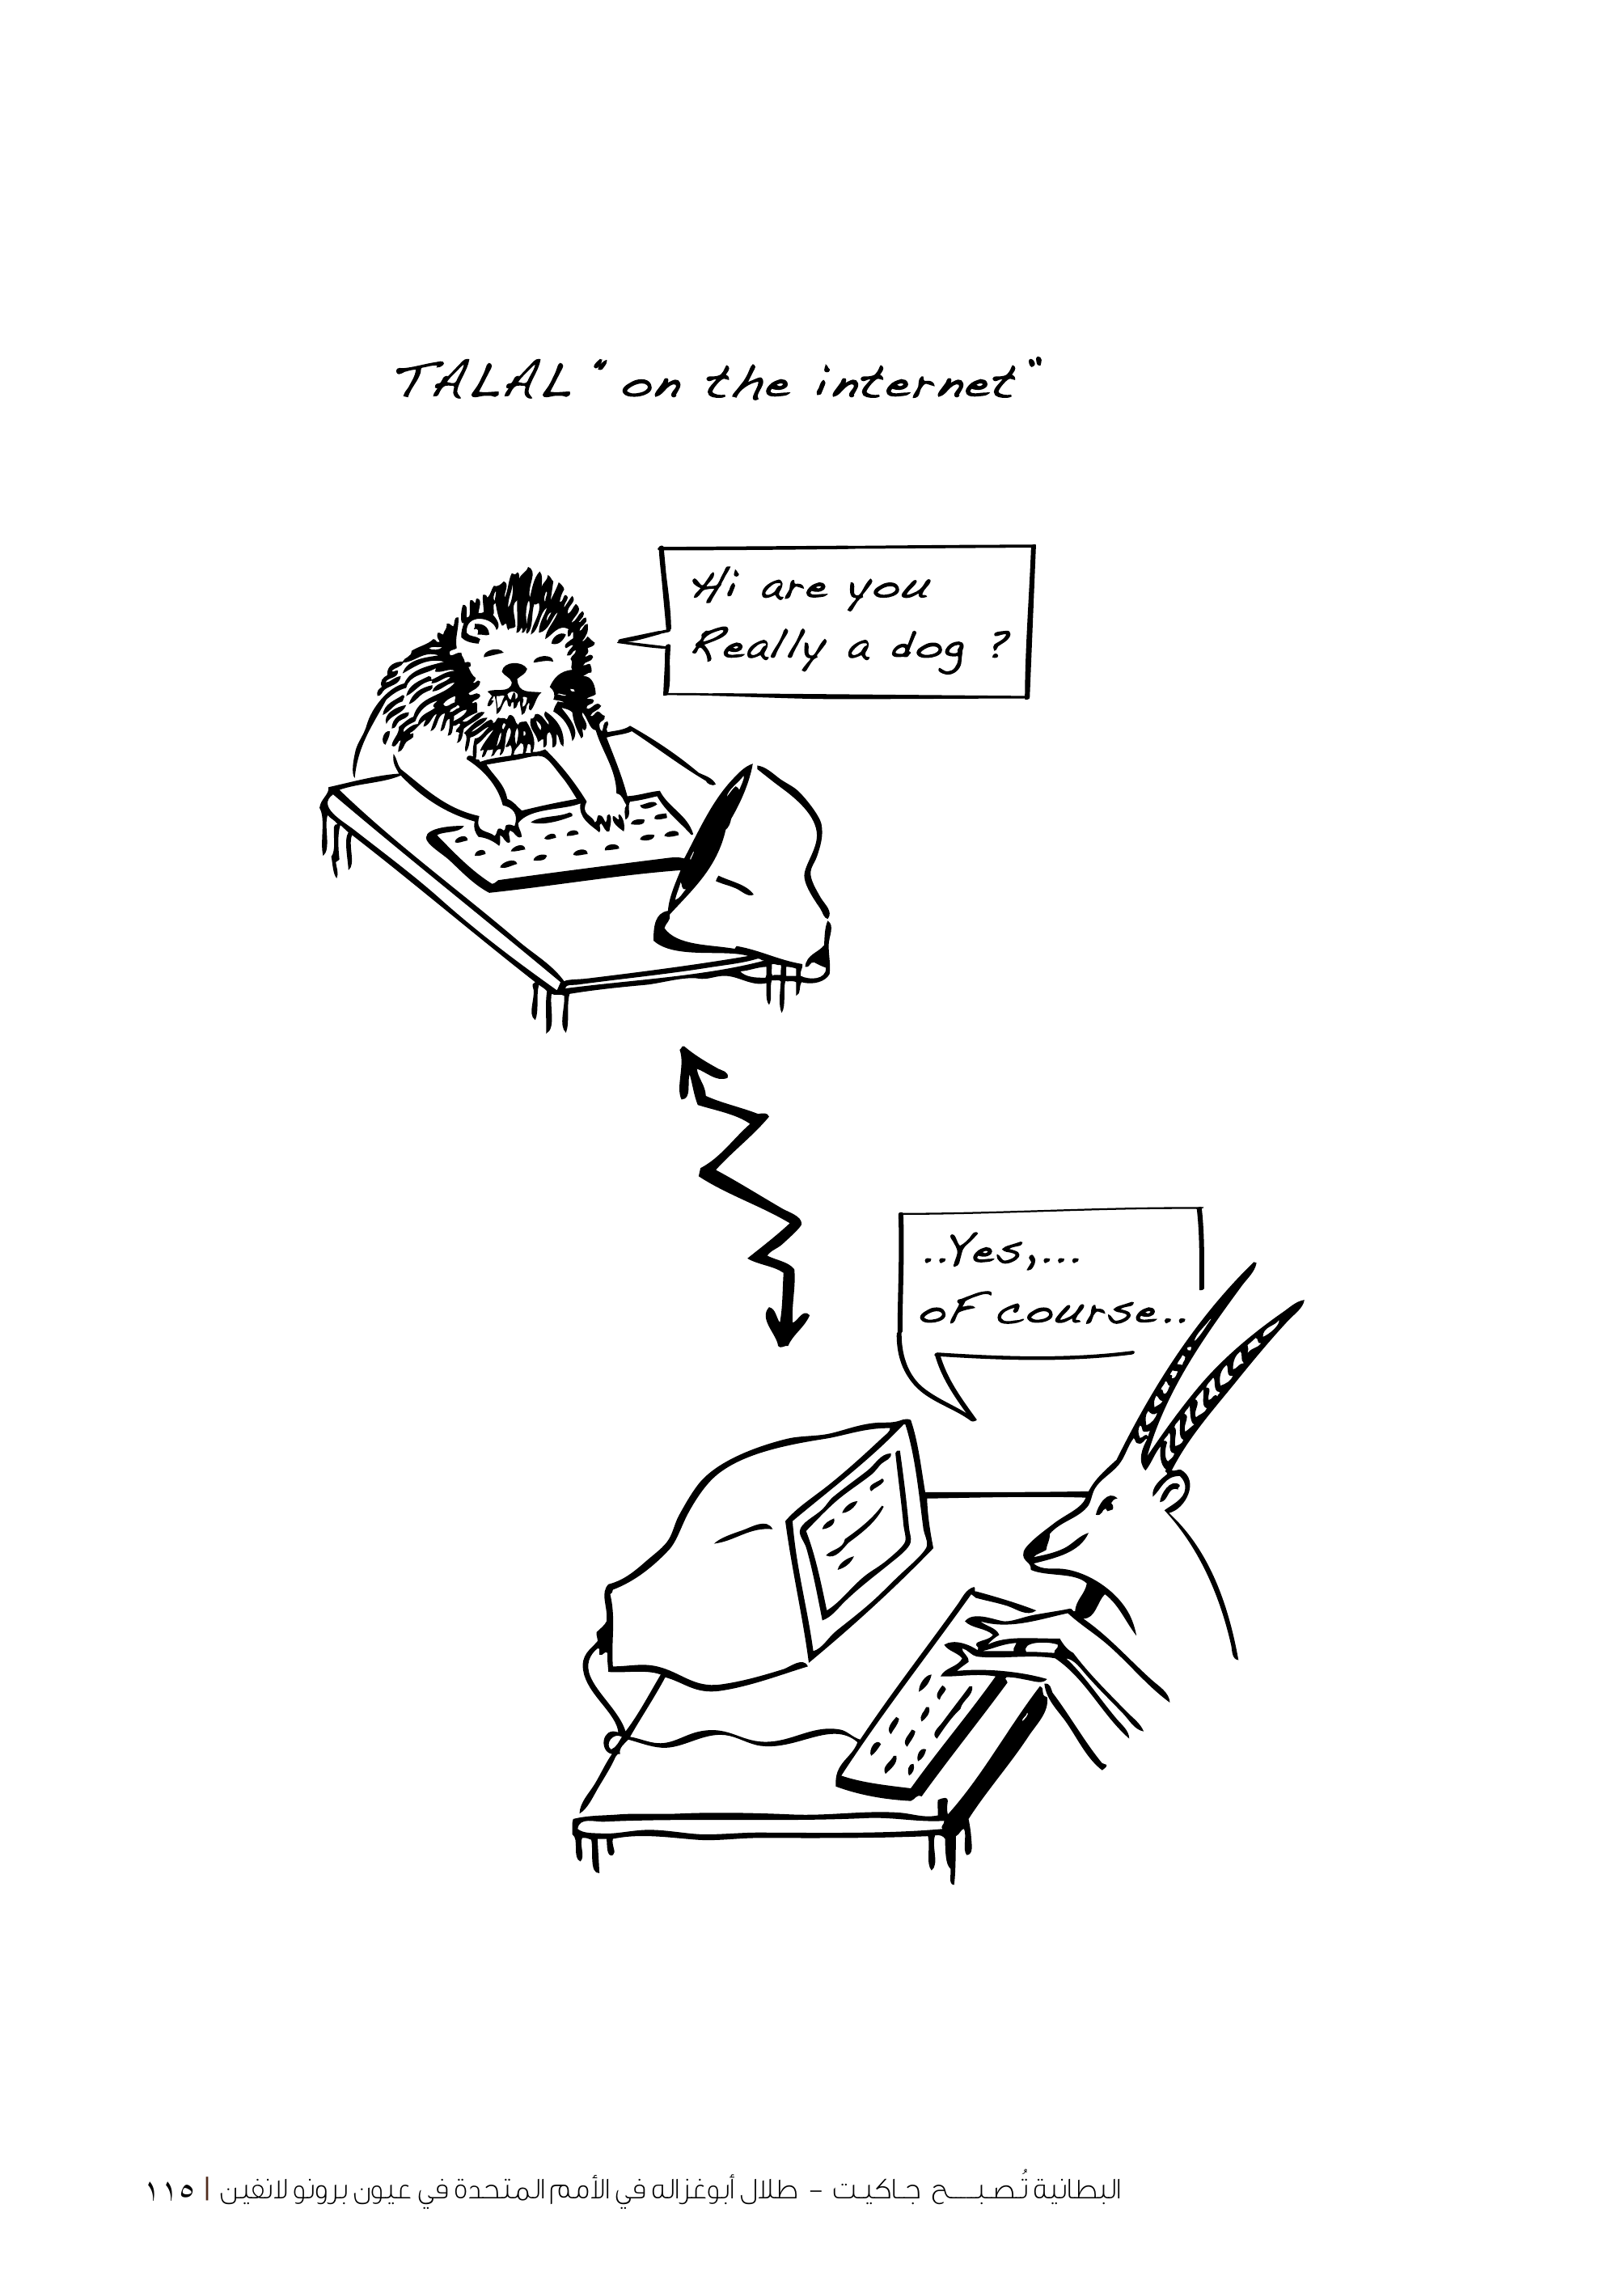 TALAL " on the internet "
Hi are you
Really a dog ?
..Yes,...
of course..
البطانية تُصبح جاكيت - طلال أبوغزاله في الأمم المتحدة في عيون برونو لانفين | ١١٥